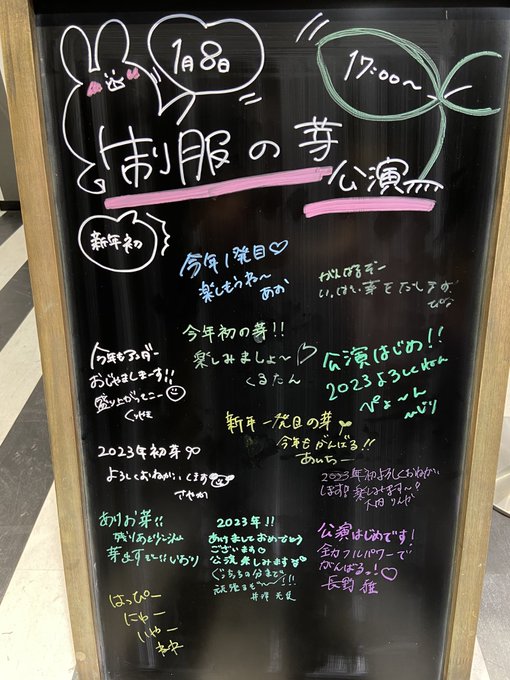 1月8日
17:00〜
制服の芽
公演
新年初
今年1発目♡
楽しもうね〜
あお
がんばるぞー
いっぱい芽をだしますお
ぴな
今年初の芽!!
楽しみましょ〜♡
くるたん
今年もアンダー
おじゃましまーす!!
盛り上がってこー
公演はじめ!!
2023よろしくれん
ぺよーん
新年一発目の芽
今年もがんばる!!
あいちー
2023年初芽
よろしくおねがいします
さやか
2023年初よろしくおねがい
します!楽しみます〜!
ありお芽!!
芽出すぞー!! いおり
2023年!!
ありましておめでとう
ございます♡
公演楽しみます
ぐっちの分まで
頑張るぞ〜!!!
公演はじめです!
全力フルパワーで
がんばるっ!♡
長野 雅
はっぴー
にゅー
いやー